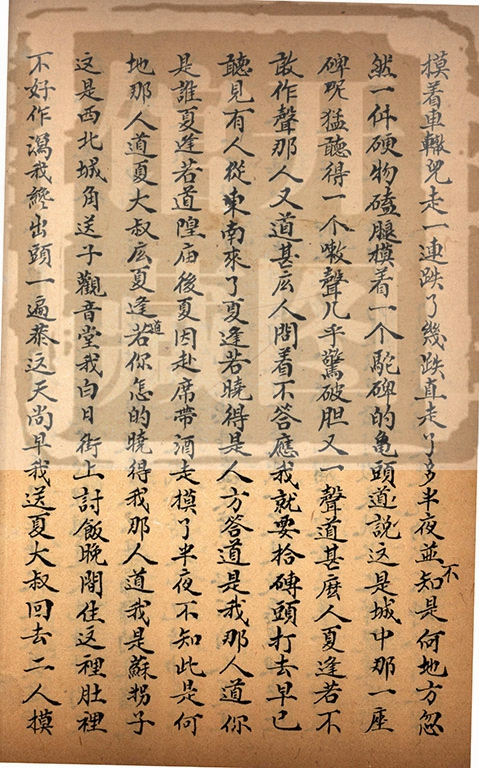 摸着車轍兒走一連跌了幾跌直走了多半夜並不知是何地方忽
然一件硬物磕腿摸着一个駝碑的亀頭道説这是城中那一座
碑呢猛聽得一个嗽聲几乎驚破胆又一聲道甚麽人夏逢若不
敢作聲那人又道甚庅人問着不答應我就要拾磚頭打去早已
聽見有人從東南來了夏逢若曉得是人方答道是我那人道你
是誰夏逢若道隍庙後夏因赴席帶酒走摸了半夜不知此是何
地那人道夏大叔庅夏逢若道你怎的曉得我那人道我是蘇拐子
这是西北城角送子觀音堂我白日街上討飯晚間住这裡肚裡
不好作瀉我纔出頭一遍恭这天尚早我送夏大叔回去二人摸